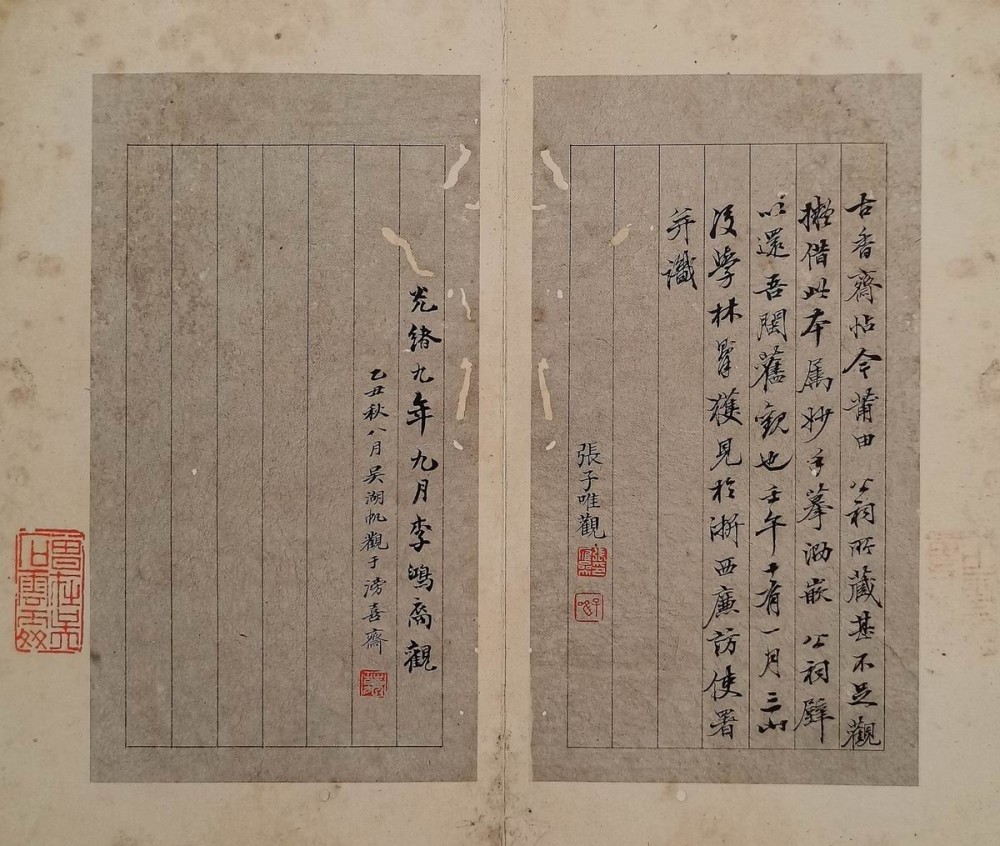 古香齋帖今莆田 公祠所藏甚不足觀
擬借此本属妙手摹泐嵌 公祠壁
以還吾閩舊觀也壬午十有一月三山
後學林 獲見於浙西廉訪使署
并識
張子唯觀
光緒九年九月李鴻裔觀
乙丑秋八月吳湖帆觀于滂喜齋
曾在吳
石雲處